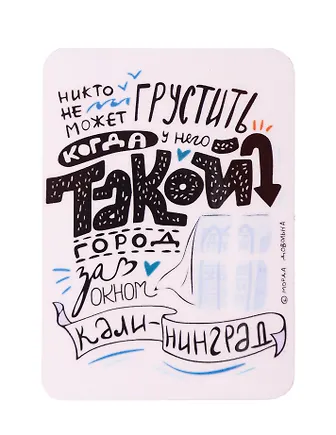 НИКТО
НЕ
МОЖЕТ
ГРУСТИТЬ
КОГДА
У НЕГО
ТАКОЙ
ГОРОД
ЗА
ОКНОМ
КАЛИ-
НИНГРАД
© МОРДА ДОВОЛЬНА